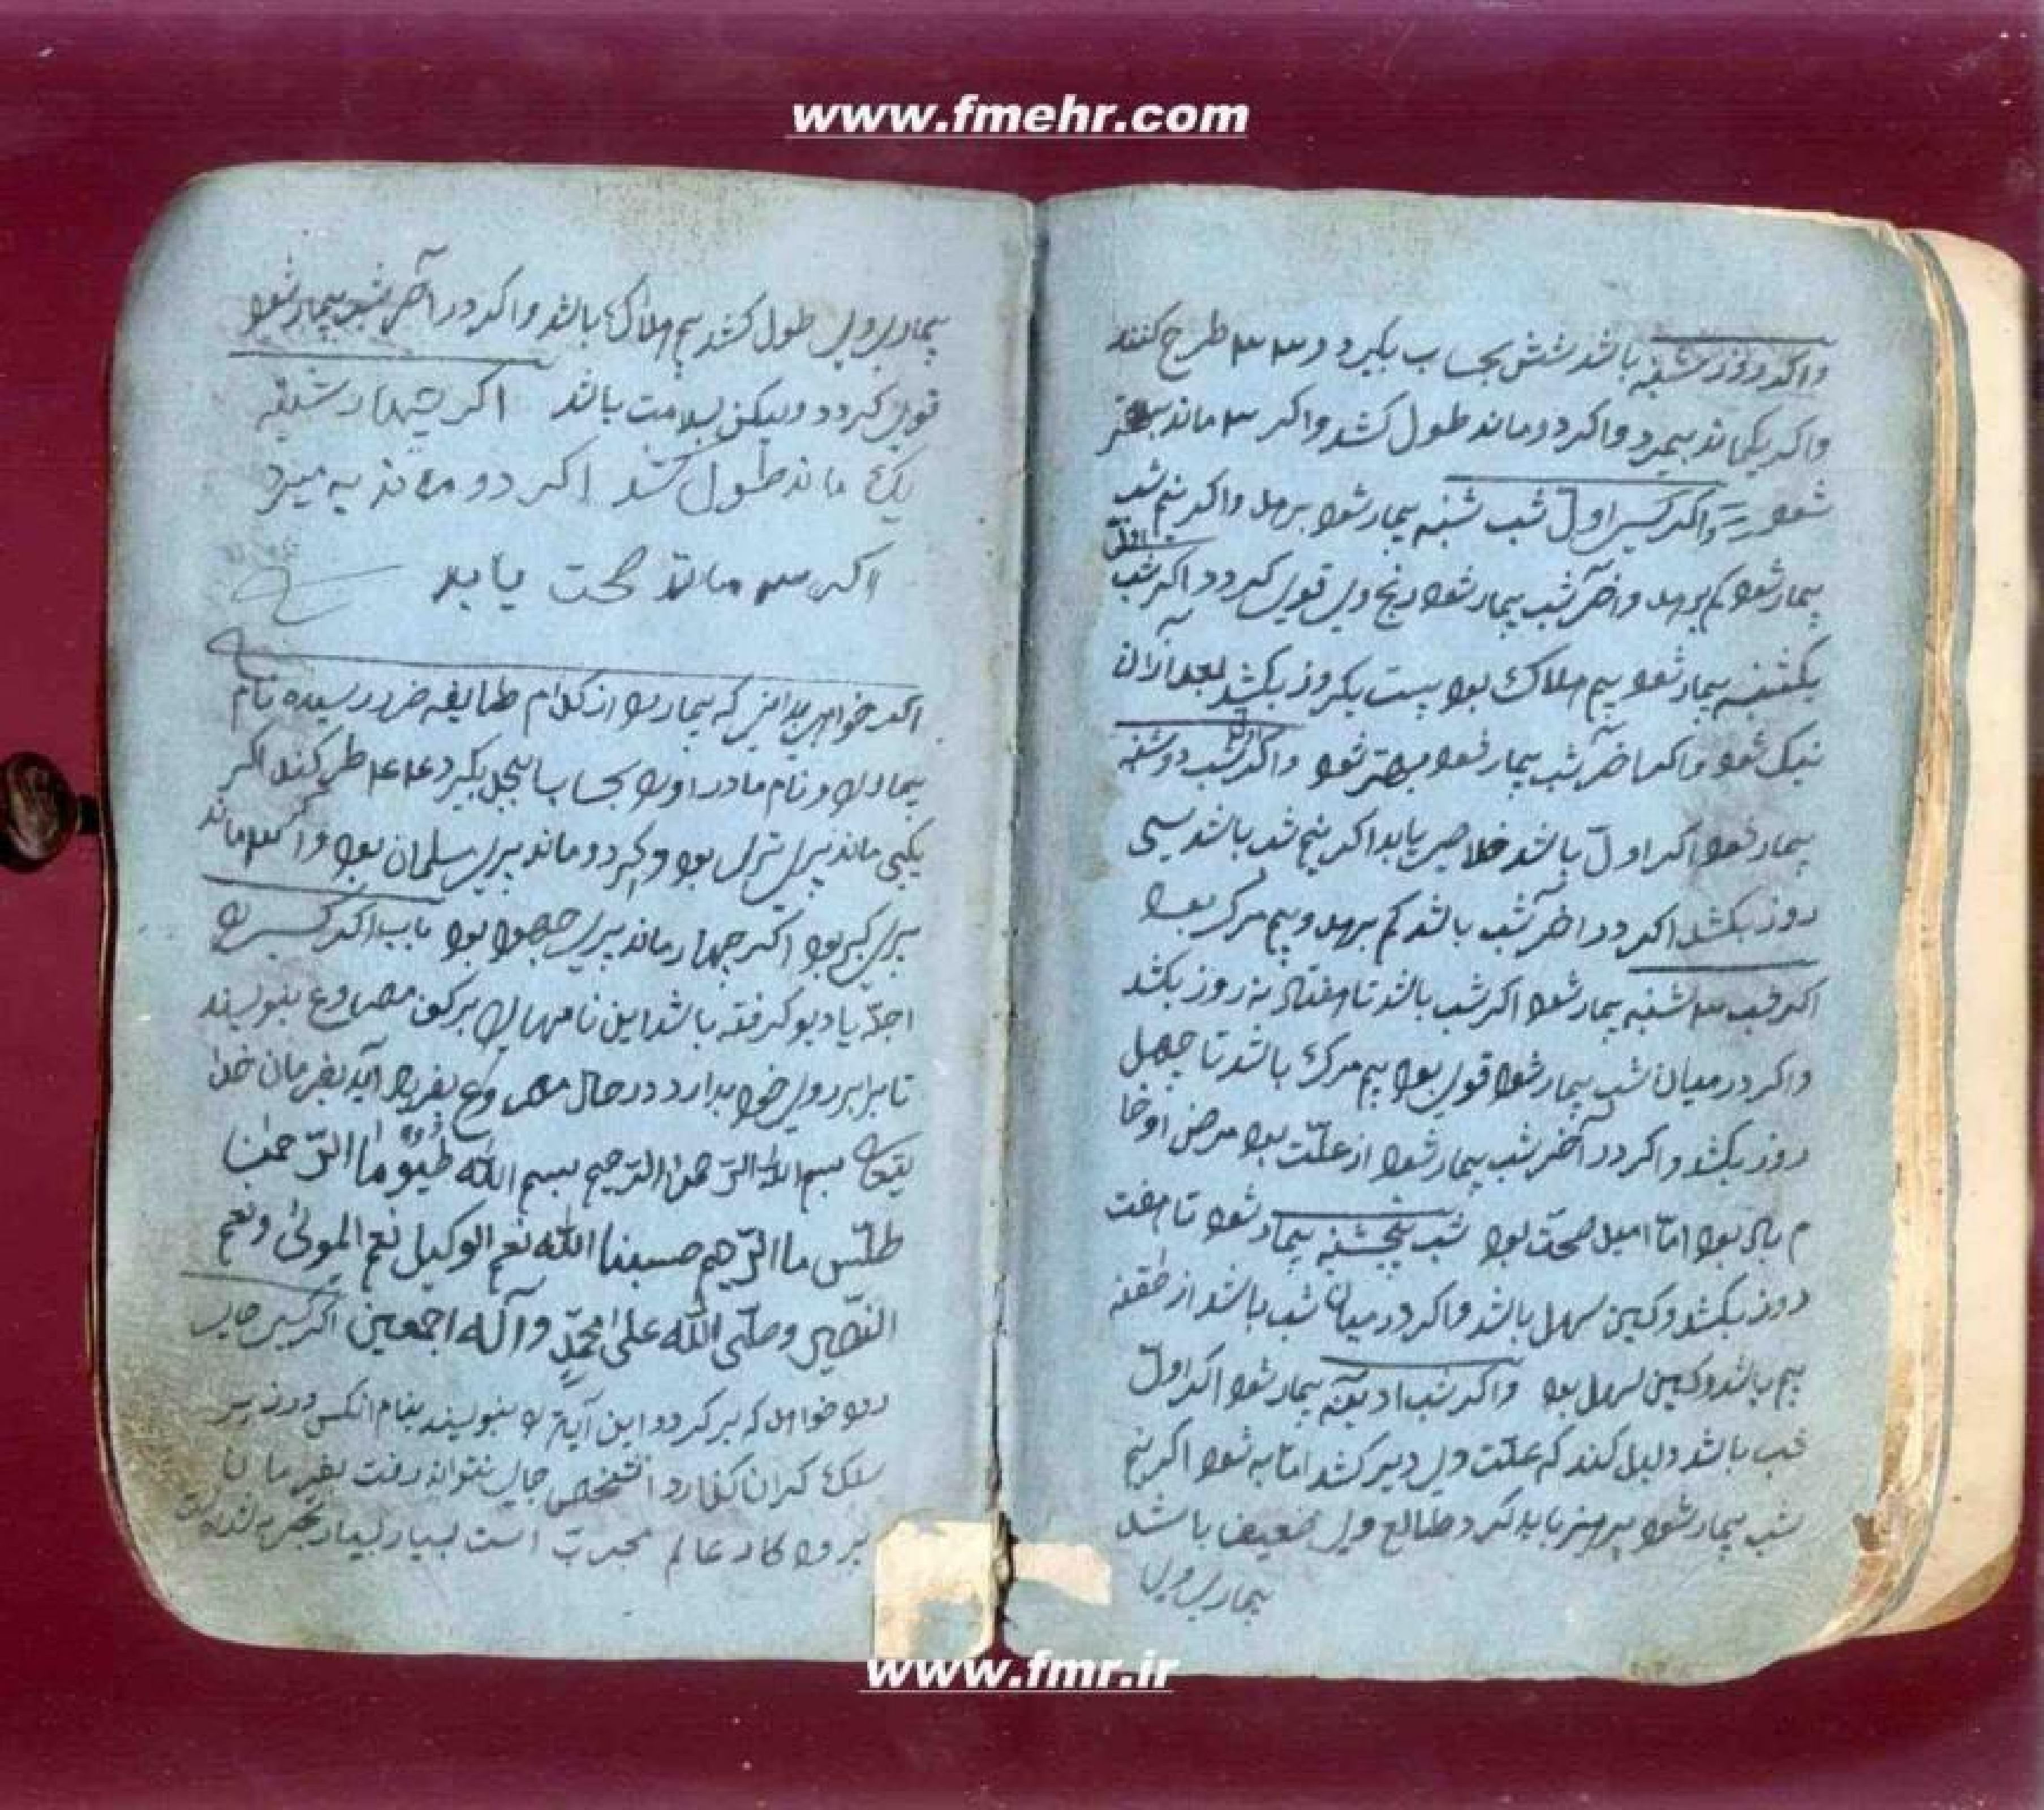 www.fmehr.com
واکر روز شنبه باشد شش بحساب بکیرد و ۳ ۳ طرح کنند
واکر یکماند بمیرد واکر دو ماند طول کشد واکر ۳ ماند بهتر
شود واکر کسی اول شب شنبه بیمار شود برهد واکر نیم شب
بیمار شود کم برهد واخر شب بیمار شود رنج وی قوی کردد اکر شب
اول
یکشنبه بیمار شود بیم هلاک بود بیست یکروز بکشد بعد ازان
نیک شود واکر اخر شب بیمار شود بهتر شود واکر شب دوشنبه
بیمار شود اکر اول باشد خلاصی یابد اکر نیم شب باشد سی
روز بکشد اکر در اخر شب باشد کم برهد وبیم مرک بود
اکر شب ۳ شنبه بیمار شود اکر شب باشد تا هفتاد نه روز بکشد
واکر در میان شب بیمار شود قوی بود بیم مرک باشد تا چهل
روز بکشد واکر در آخر شب بیمار شود از علّت بود مرض او
بود امّا امید صحّت بود شب پنجشنبه بیمار شود تا هفت
روز بکشد ولیکن سهل باشد واکر در میان شب باشد از
بیم باشد ولیکن سهل بود واکر شب ادینه بیمار شود اکر اوّل
شب باشد دلیل کند که علّت وی دیر کشد امّا به شود اکر نیم
شب بیمار شود پرهیز باید کرد وطالع وی ضعیف باشد
بیماری وی
بیماری وی طول کشد بیم هلاک باشد واکر در آخر شب بیمار شود
قوی کردد ولیکن بسلامت باشد اکر چهار شنبه
یک ماند طول کشد اکر دو ماند به میرد
اکر ۳ ماند صحت یابد
اکر خواهی بدانی که بیمار را از کدام طایفه ضرر رسیده نام
بیمار را و نام مادر او را بحساب ابجد بکیرد ۴ ۴ طرح کند اکر
یکی ماند پری بود واکر دو ماند پری مسلمان بود واکر ۳ ماند
پری کبر بود اکر چهار ماند پری جهود بود باب اکر کسی را
اجنّه یا دیو کرفته باشد این نامها را بر کف مصروع بنویسند
تا برابر روی خود بدارد در حال مصروع بفریاد آید بفرمان خدا
بسم الله الرّحمن الرّحیم بسم الله ما الرّحمن
ما الرّحیم حسبنا الله نعم الوکیل نعم المولی ونعم
النّصیر وصلّی الله علی محمّد وآله اجمعین اکر کسی جایی
رود خواهد که بر کردد این آیة را بنویسد بنام انکس ودر زیر
سنک کران کذارد انشخص جایی نتواند رفت بفرمان
مجرب است بسیار بسیار
www.fmr.ir